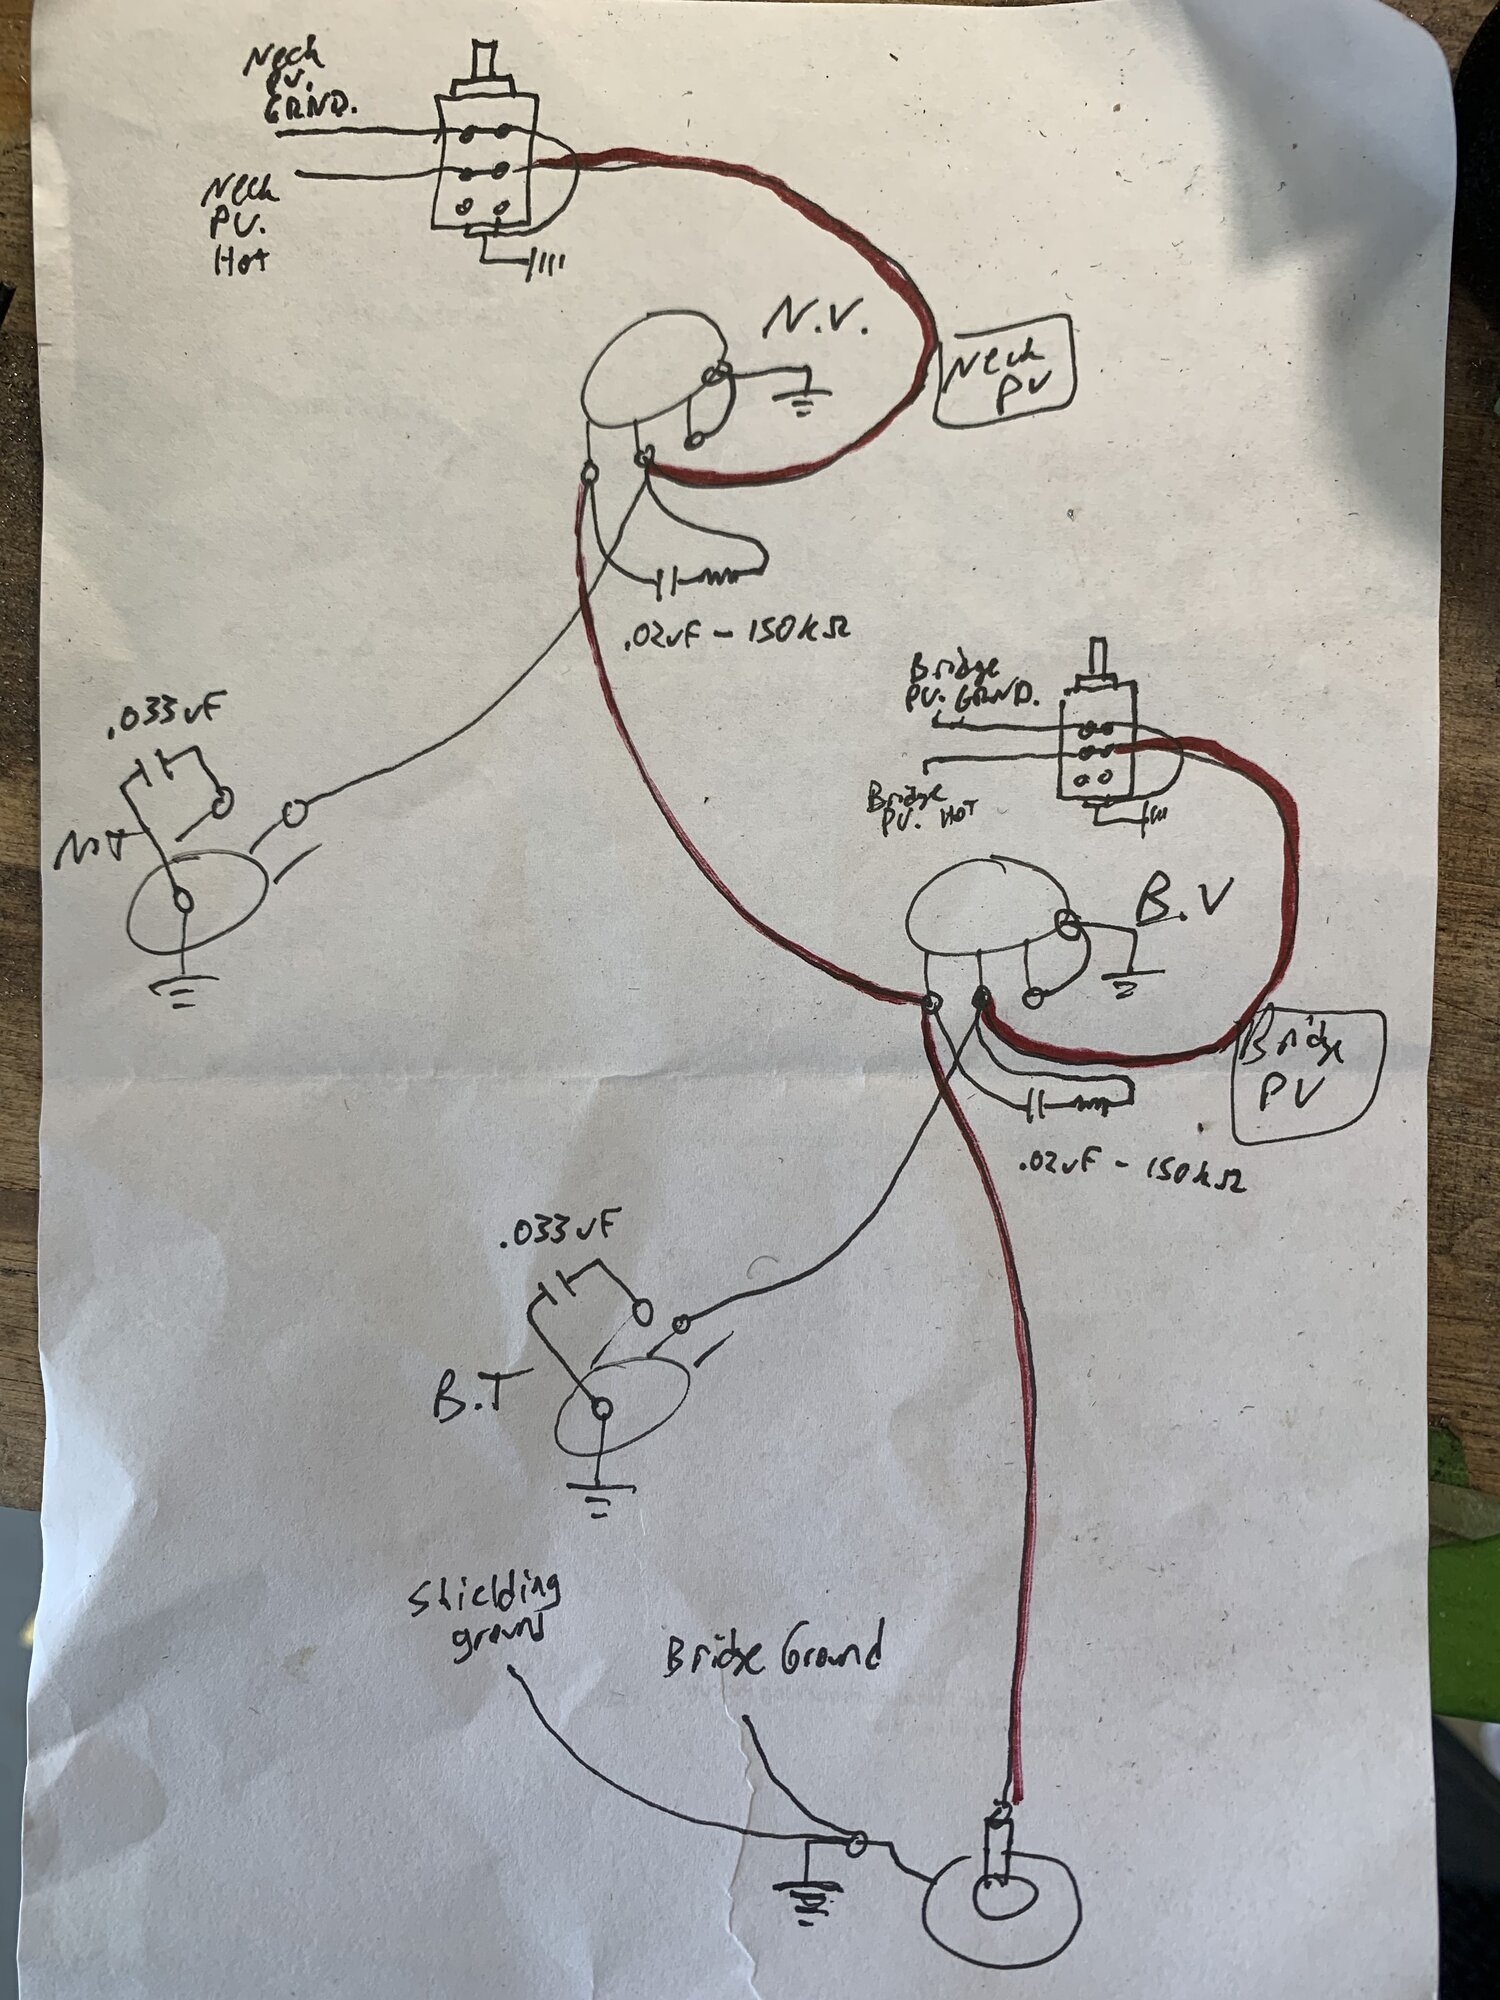 Neck
PU.
GRND.
Neck
PU.
Hot
N.V.
Neck
PU
.02uF - 150kΩ
Bridge
PU. GRND.
.033uF
Bridge
PU. HOT
N.T
B.V
Bridge
PU
.02uF - 150kΩ
.033uF
B.T
Shielding
ground
Bridge Ground